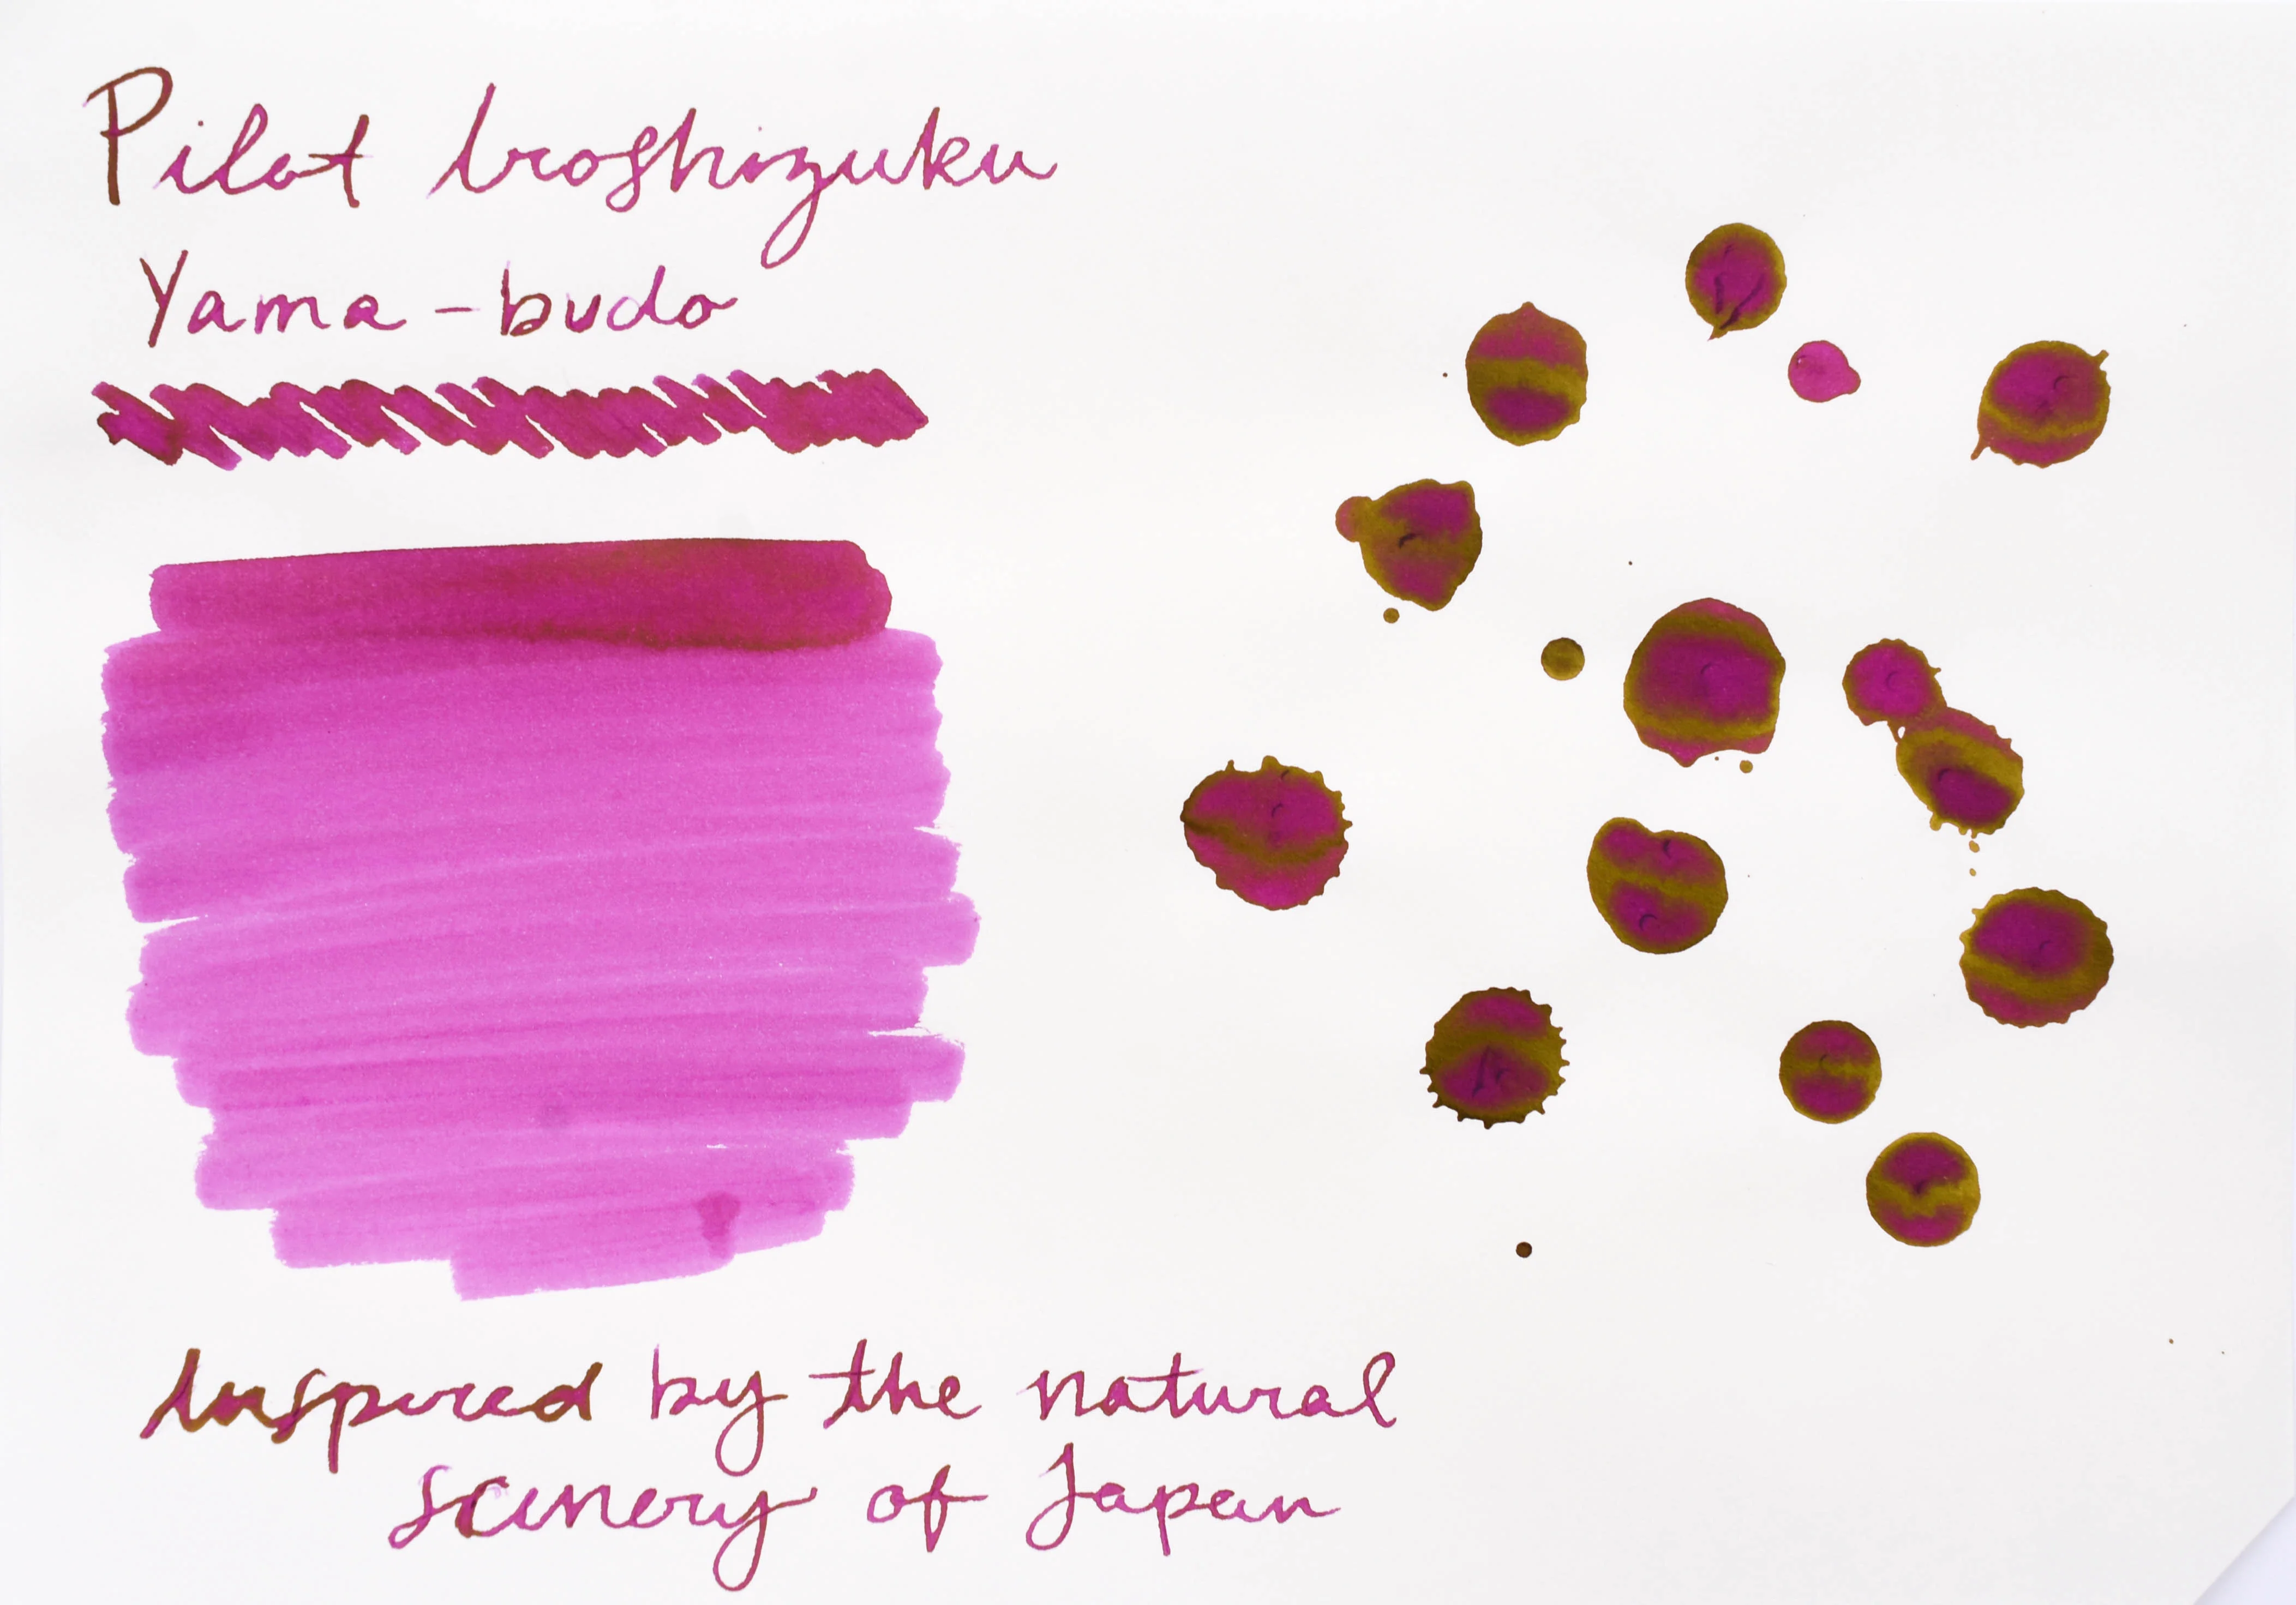 Pilot Iroshizuku
Yama-budo
Inspired by the natural
scenery of Japan